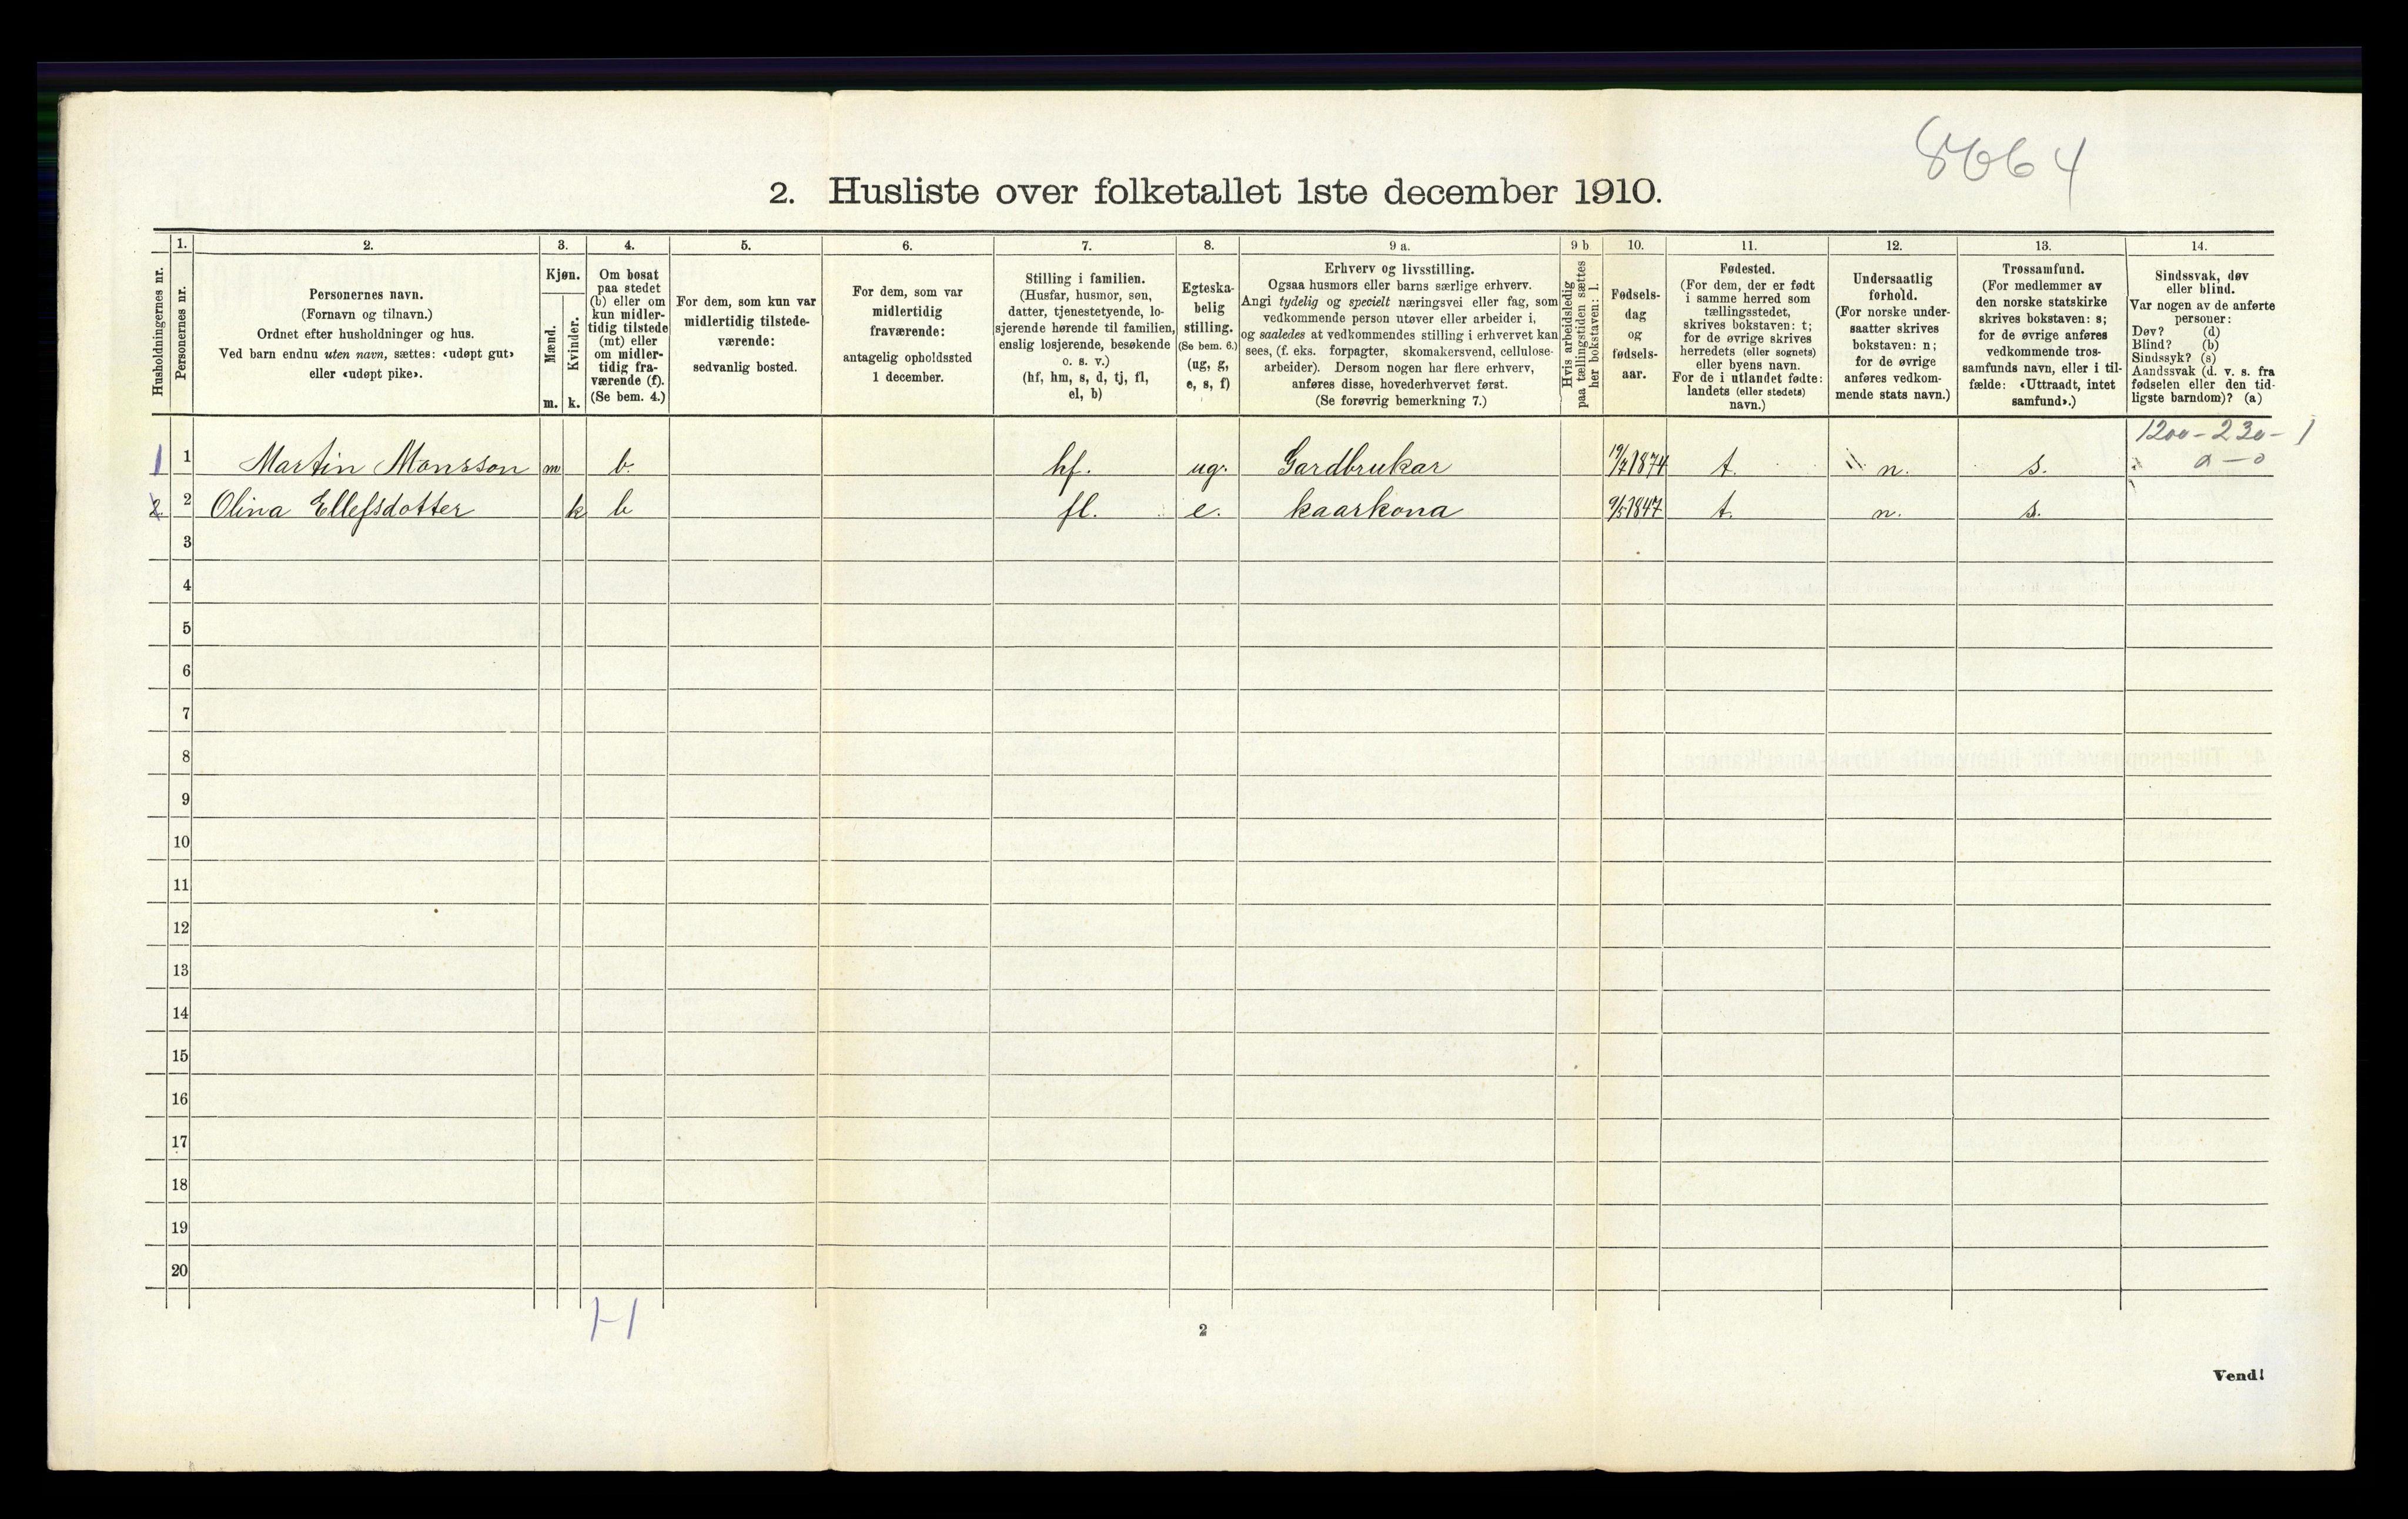 8664
2. Husliste over folketallet 1ste december 1910.
Husholdningernes nr.
1.
Personernes nr.
2.
Personernes navn.
(Fornavn og tilnavn.)
Ordnet efter husholdninger og hus.
Ved barn endnu uten navn, sættes: «udøpt gut»
eller «udøpt pike».
3.
Kjøn.
Mænd.
Kvinder.
m. k.
4.
Om bosat
paa stedet
(b) eller om
kun midler-
tidig tilstede
(mt) eller
om midler-
tidig fra-
værende (f).
(Se bem. 4.)
5.
For dem, som kun var
midlertidig tilstede-
værende:
sedvanlig bosted.
6.
For dem, som var
midlertidig
fraværende:
antagelig opholdssted
1 december.
7.
Stilling i familien.
(Husfar, husmor, søn,
datter, tjenestetyende, lo-
sjerende hørende til familien,
enslig losjerende, besøkende
o. s. v.)
(hf, hm, s, d, tj, fl,
el, b)
8.
Egteska-
belig
stilling.
(Se bem. 6.)
(ug, g,
e, s, f)
9 a.
Erhverv og livsstilling.
Ogsaa husmors eller barns særlige erhverv.
Angi tydelig og specielt næringsvei eller fag, som
vedkommende person utøver eller arbeider i,
og saaledes at vedkommendes stilling i erhvervet kan
sees, (f. eks. forpagter, skomakersvend, cellulose-
arbeider). Dersom nogen har flere erhverv,
anføres disse, hovederhvervet først.
(Se forøvrig bemerkning 7.)
9 b
Hvis arbeidsledig
paa tællingstiden sættes
her bokstaven: l.
10.
Fødsels-
dag
og
fødsels-
aar.
11.
Fødested.
(For dem, der er født
i samme herred som
tællingsstedet,
skrives bokstaven: t;
for de øvrige skrives
herredets (eller sognets)
eller byens navn.
For de i utlandet fødte:
landets (eller stedets)
navn.)
12.
Undersaatlig
forhold.
(For norske under-
saatter skrives
bokstaven: n;
for de øvrige
anføres vedkom-
mende stats navn.)
13.
Trossamfund.
(For medlemmer av
den norske statskirke
skrives bokstaven: s;
for de øvrige anføres
vedkommende tros-
samfunds navn, eller i til-
fælde: «Uttraadt, intet
samfund».)
14.
Sindssvak, døv
eller blind.
Var nogen av de anførte
personer:
Døv? (d)
Blind? (b)
Sindssyk? (s)
Aandssvak (d. v. s. fra
fødselen eller den tid-
ligste barndom)? (a)
1200 - 230 - 1
0 - 0
1 1 Martin Monsson m b. hf. ug. Gardbrukar 19/7 1874 t. n. s.
2 2 Olina Ellefsdotter k b fl. e. kaarkona 9/5 1847 t. n. s.
3
4
5
6
7
8
9
10
11
12
13
14
15
16
17
18
19
20
1-1
2
Vend!